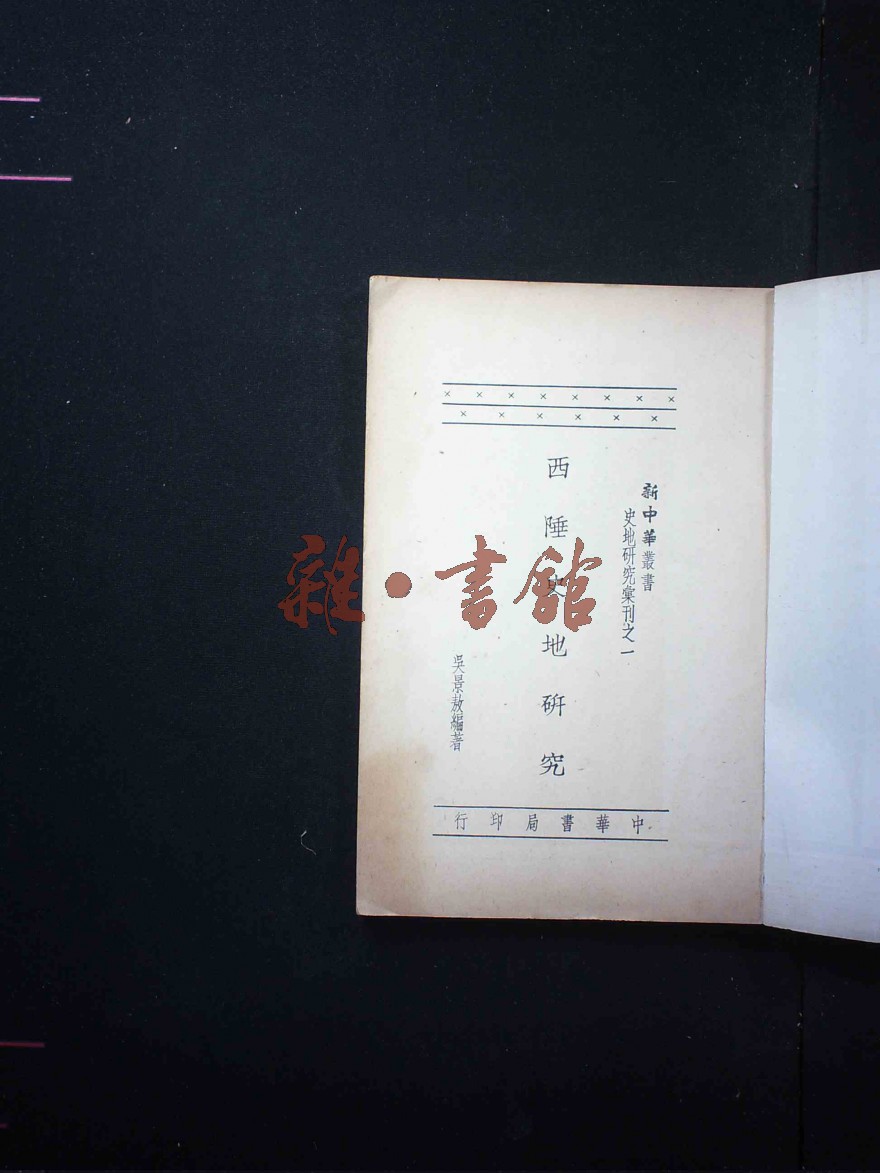 新中華叢書
史地研究彙刊之一
西陲史地研究
吳景敖編著
中華書局印行
雜·書館